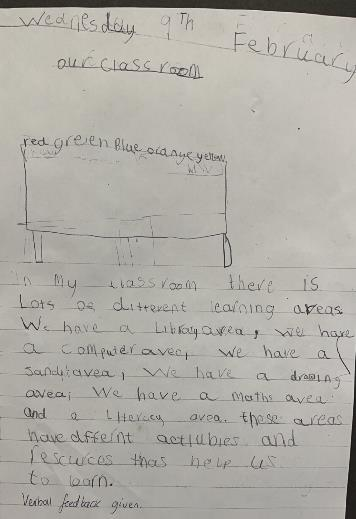 Wednesday 9th February
our classroom
red greien Blue orange yellow
in My classroom there is
Lots oe different learning areas
We have a Library area, We have
a computer area, We have a
sand area, We have a drawing
area, We have a maths area
and a Literacy area. these areas
have dffeint actiubies and
rescurcos thas help us
to learn.
Verbal feedback given.